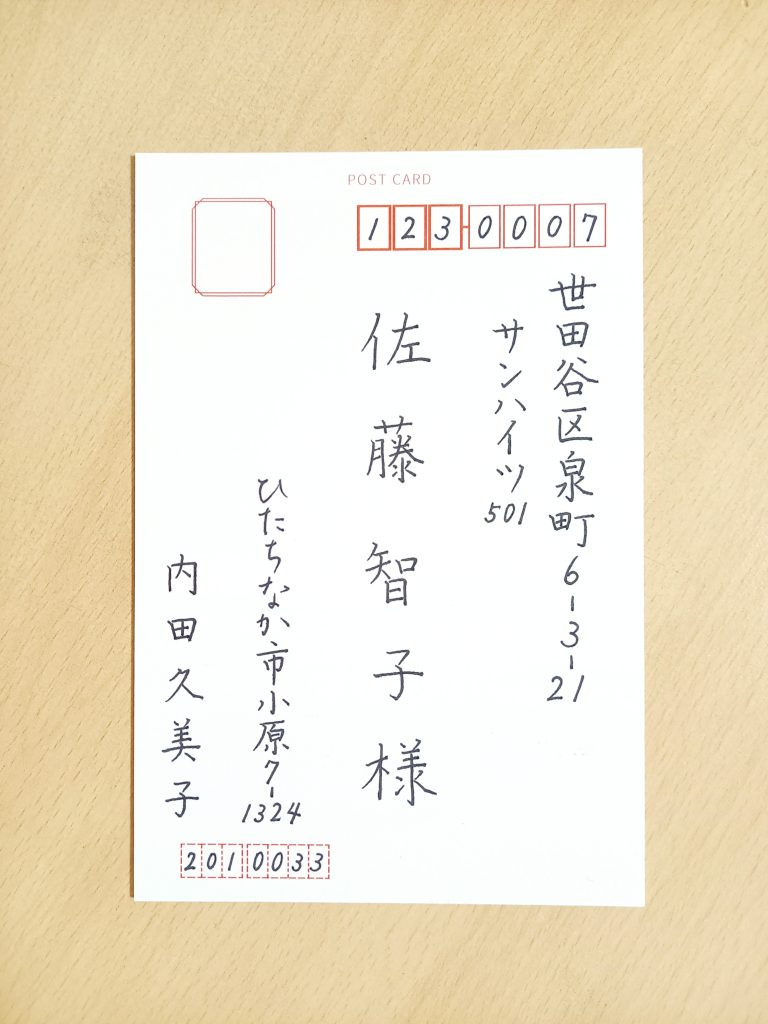 POST CARD
123-0007
世田谷区泉町6-3-21
サンハイツ501
佐藤智子様
ひたちなか市小原7-1324
内田久美子
2010033